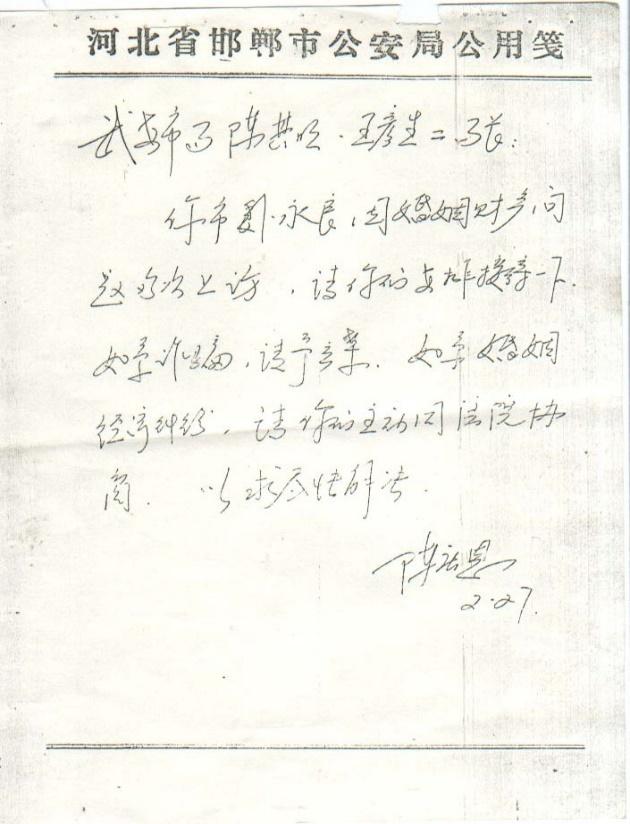 河北省邯郸市公安局公用笺
武安市局陈 王彦生二局长:
你市 永良,因婚姻财产问
题多次上访,请你们安排接待一下.
如系诈骗,请予立案.如系婚姻
经济纠纷,请你们主动同法院协
商.以求尽快解决.
陈
2.27.